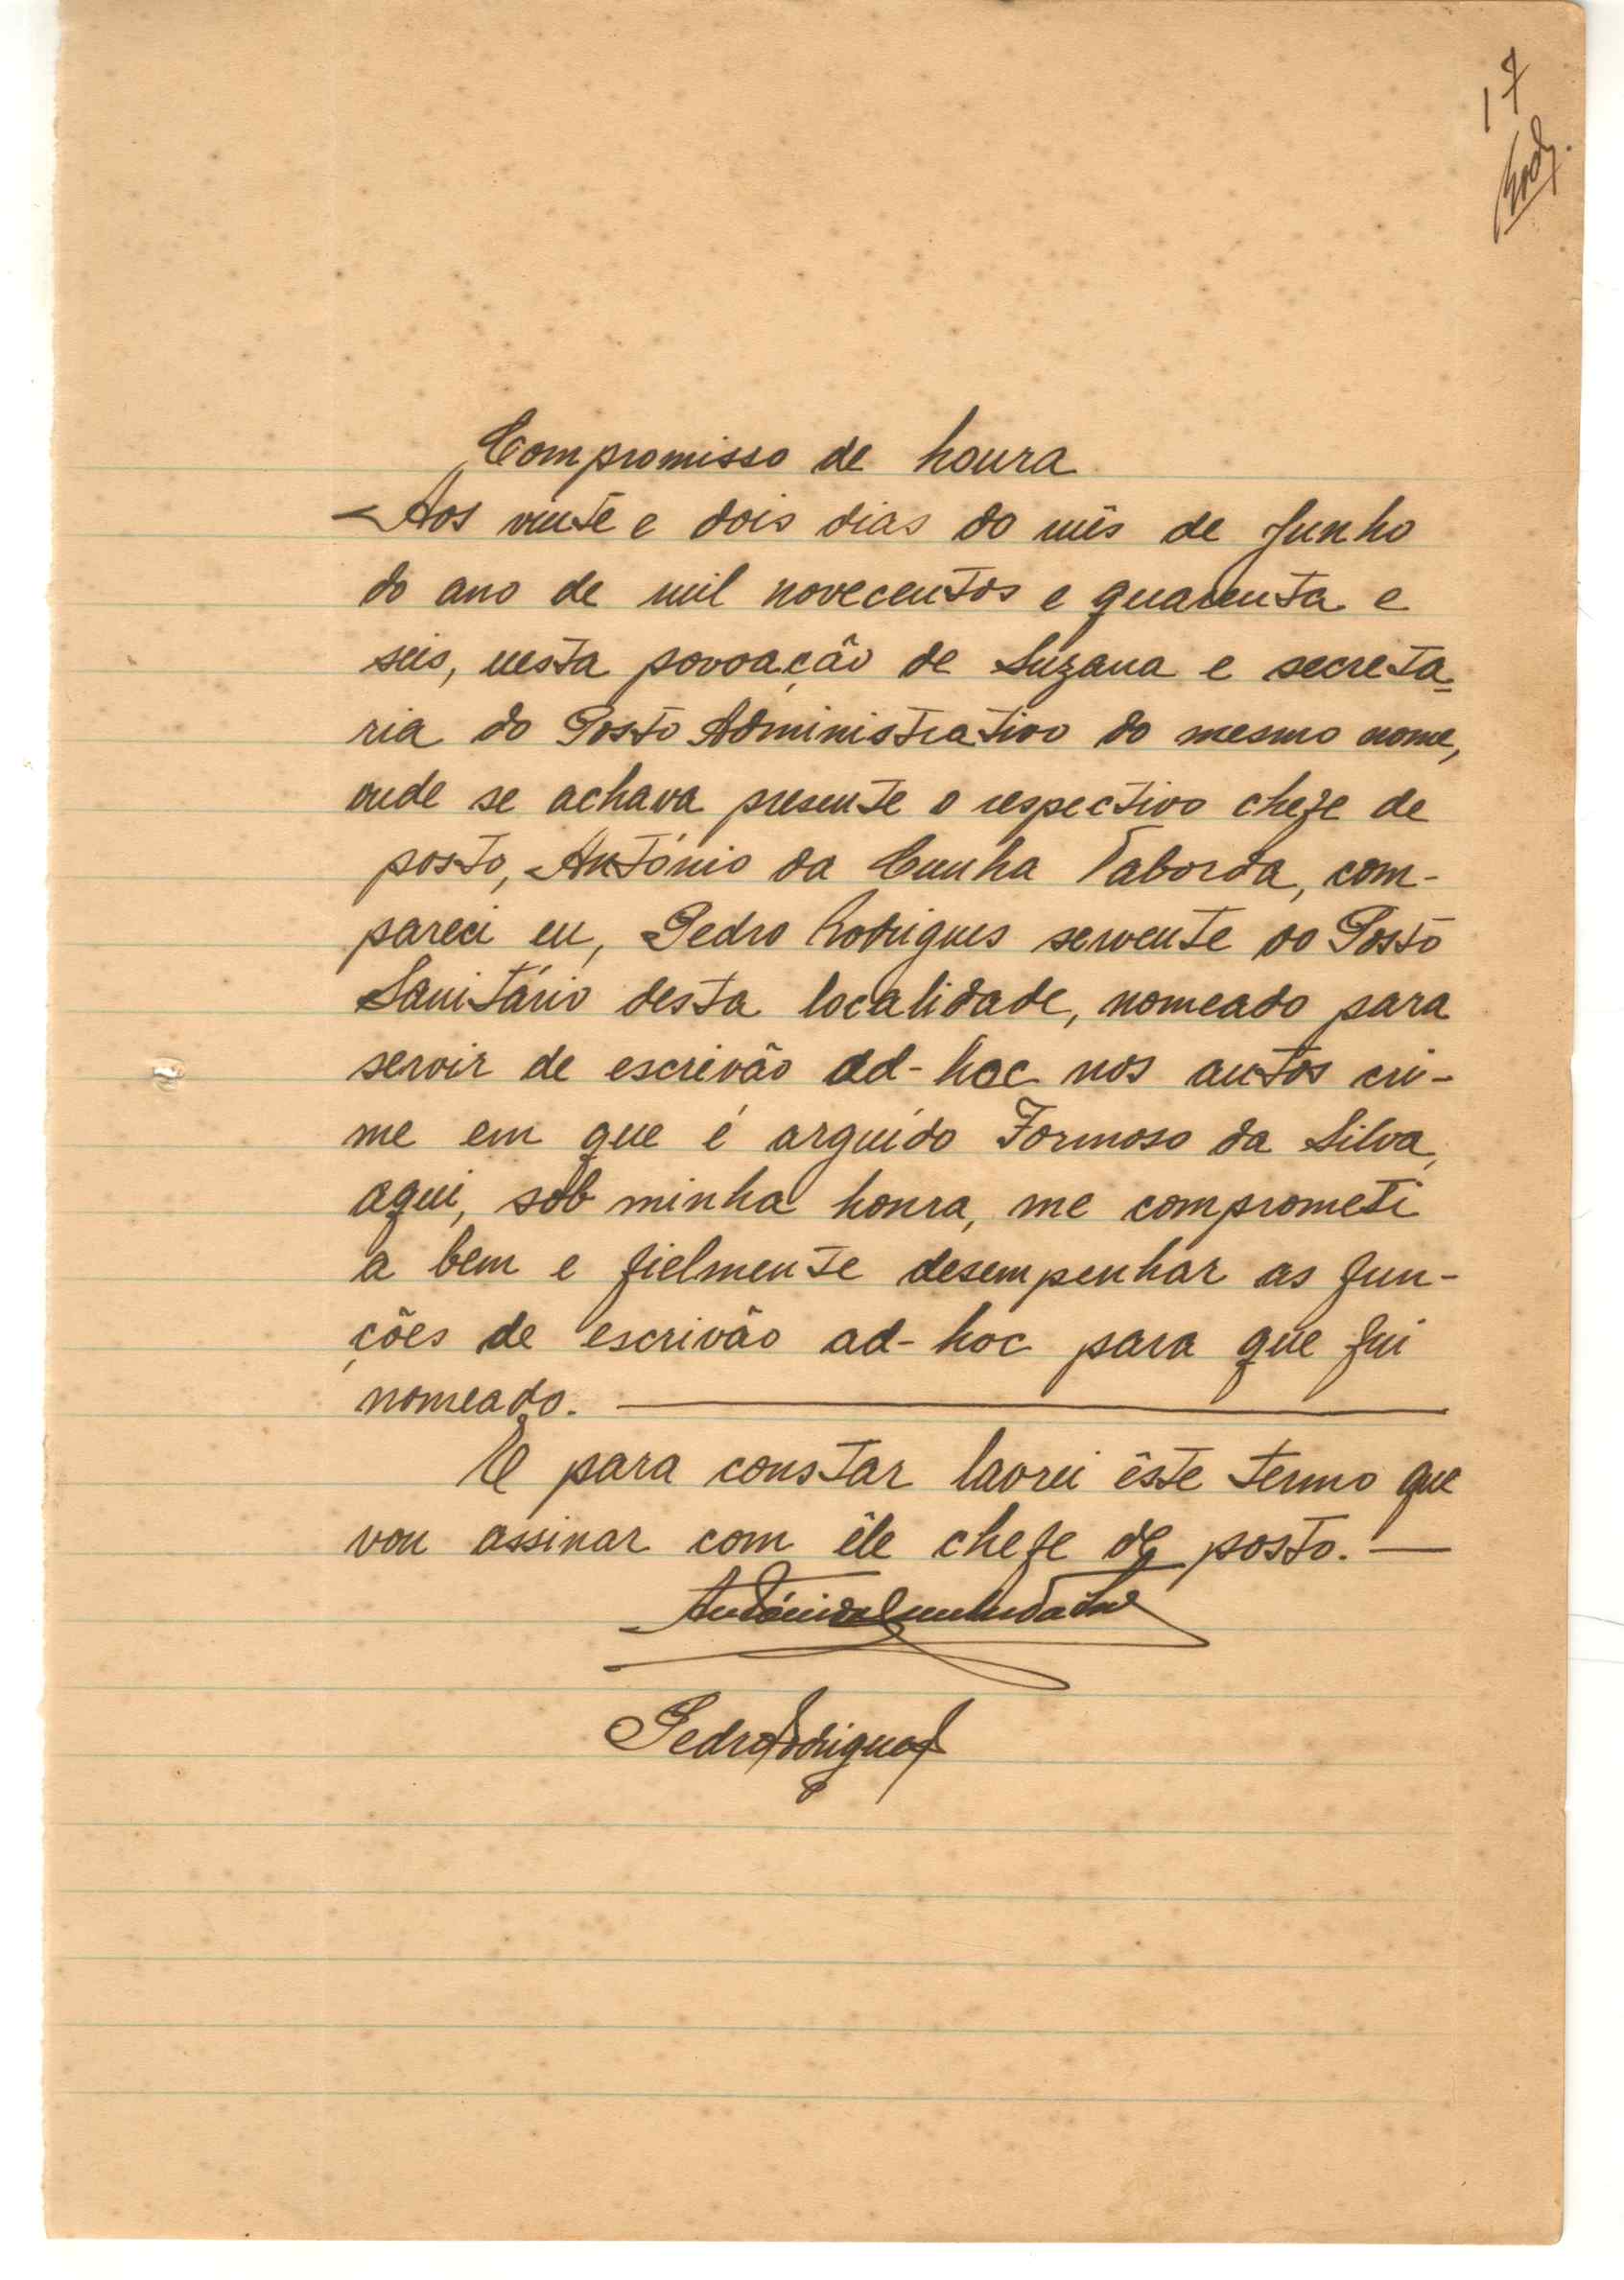 17
Rody.
Compromisso de honra
Aos vinte e dois dias do mês de Junho
do ano de mil novecentos e quarenta e
seis, nesta povoação de Suzana e secreta-
ria do Posto Administrativo do mesmo nome,
onde se achava presente o respectivo chefe de
posto, António da Cunha Taborda, com-
pareci eu, Pedro Rodrigues servente do Posto
Sanitário desta localidade, nomeado para
servir de escrivão ad-hoc nos autos cri-
me em que é arguído Formoso da Silva,
aqui, sob minha honra, me comprometi
a bem e fielmente desempenhar as fun-
ções de escrivão ad-hoc para que fui
nomeado.
E para constar lavrei êste termo que
vou assinar com êle chefe de posto.
António da Cunha Taborda
Pedro Rodrigues